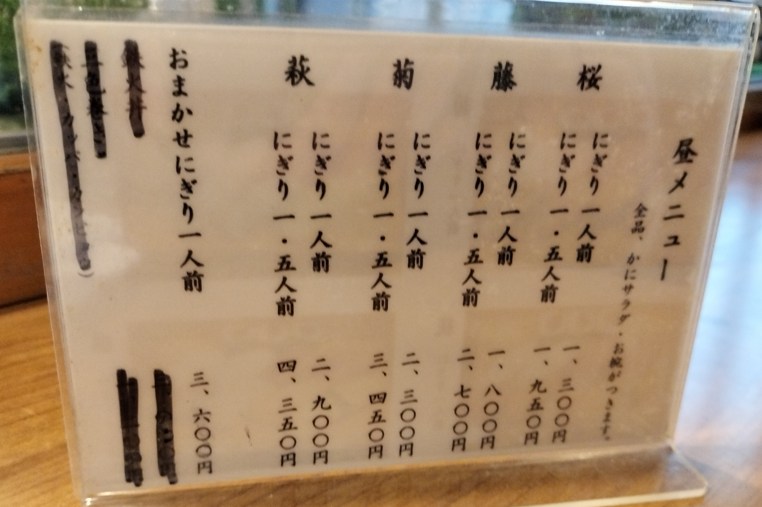 昼メニュー
全品、かにサラダ・お椀がつきます。
桜 にぎり 一人前 一、三〇〇円
にぎり 一・五人前 一、九五〇円
藤 にぎり 一人前 一、八〇〇円
にぎり 一・五人前 二、七〇〇円
菊 にぎり 一人前 二、三〇〇円
にぎり 一・五人前 三、四五〇円
萩 にぎり 一人前 二、九〇〇円
にぎり 一・五人前 四、三五〇円
おまかせにぎり一人前 三、六〇〇円